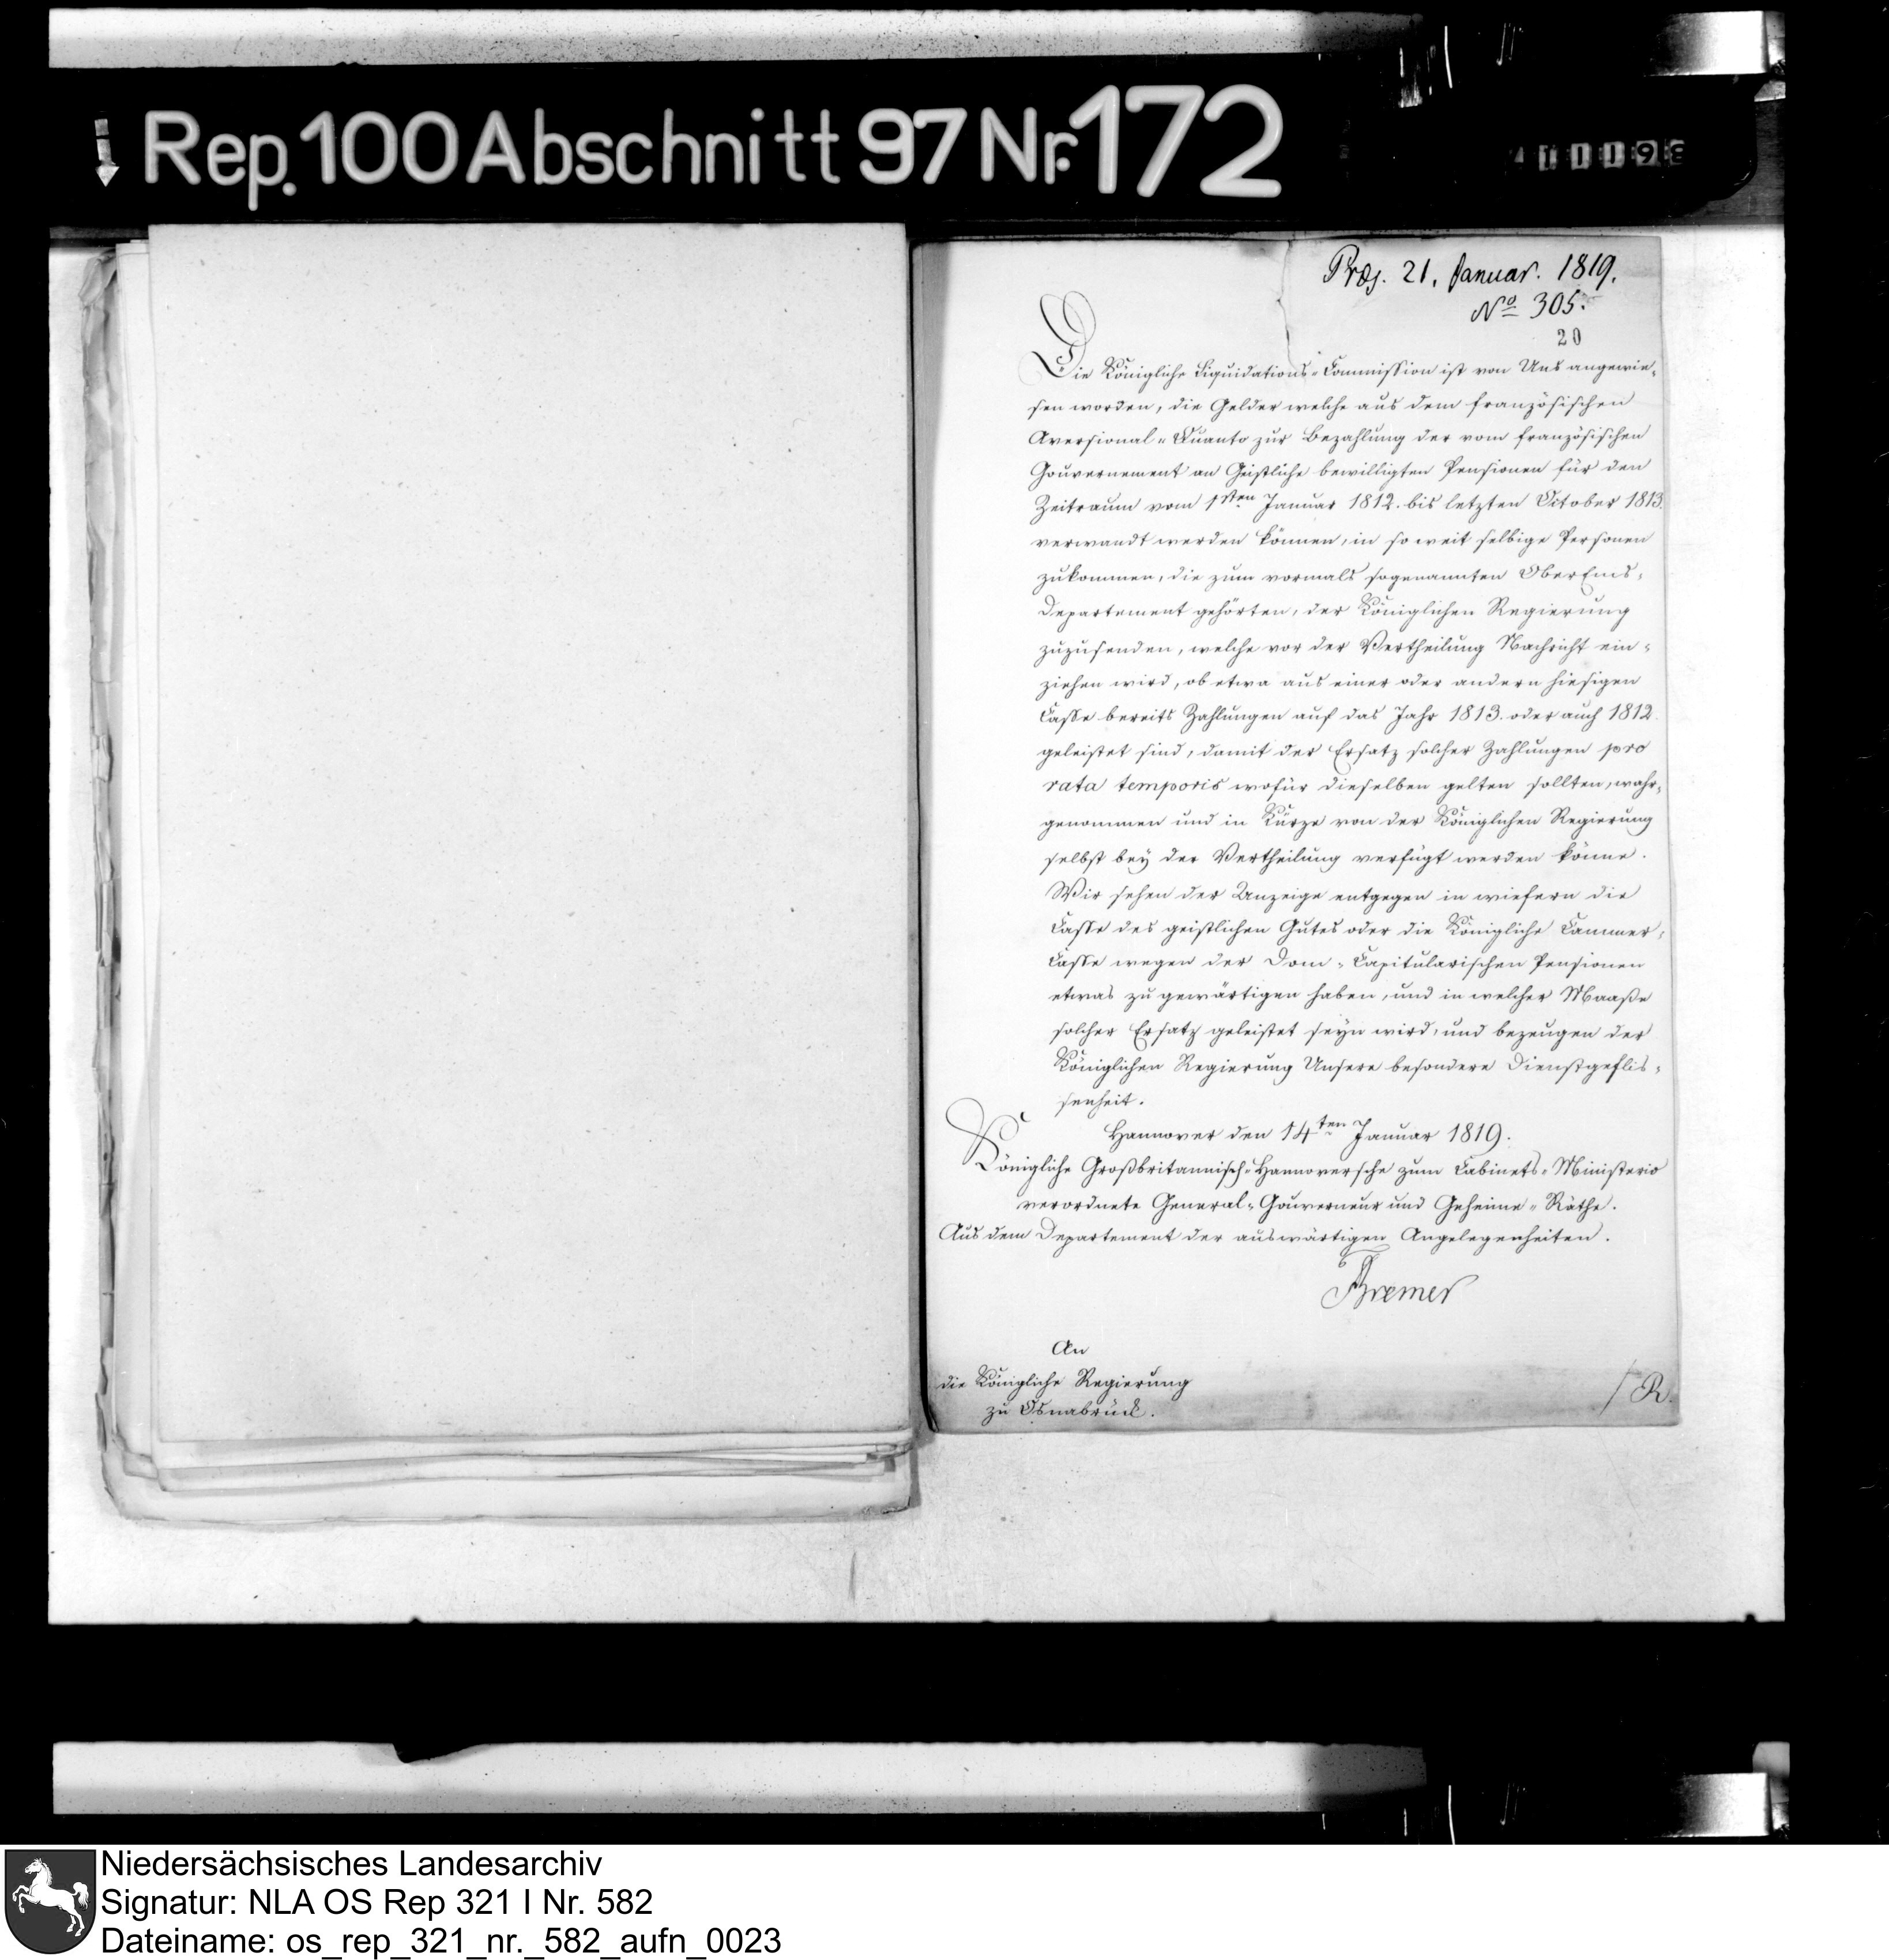 Rep. 100 Abschnitt 97 Nr. 172
Præs. 21. Januar. 1819.
No 305.
20
Die Königliche Liquidations-Commission ist von Uns angewie-
sen worden, die Gelder welche aus dem französischen
Aversional-Quanto zur Bezahlung der vom französischen
Gouvernement an Geistliche bewilligten Pensionen für den
Zeitraum vom 1sten Januar 1812. bis letzten October 1813.
verwandt werden können, in so weit selbige Personen
zukommen, die zum vormals sogenannten OberEms-
Departement gehörten, der Königlichen Regierung
zuzusenden, welche vor der Vertheilung Nachricht ein-
ziehen wird, ob etwa aus einer oder andern hiesigen
Casse bereits Zahlungen auf das Jahr 1813. oder auch 1812.
geleistet sind, damit der Ersatz solcher Zahlungen pro
rata temporis wofür dieselben gelten sollten, wahr-
genommen und in Kürze von der Königlichen Regierung
selbst bey der Vertheilung verfügt werden könne.
Wir sehen der Anzeige entgegen in wiefern die
Casse des geistlichen Gutes oder die Königliche Cammer-
Casse wegen der Dom-Capitularischen Pensionen
etwas zu gewärtigen haben, und in welcher Maaße
solcher Ersatz geleistet seyn wird, und bezeugen der
Königlichen Regierung Unsere besondere Dienstgeflis-
senheit.
Hannover den 14ten Januar 1819.
Königliche Großbritannisch-Hannoversche zum Cabinets-Ministerio
verordnete General-Gouverneur und Geheime-Räthe.
Aus dem Departement der auswärtigen Angelegenheiten.
Bremer
An
die Königliche Regierung
zu Osnabrück.
/ R.
Niedersächsisches Landesarchiv
Signatur: NLA OS Rep 321 I Nr. 582
Dateiname: os_rep_321_nr._582_aufn_0023